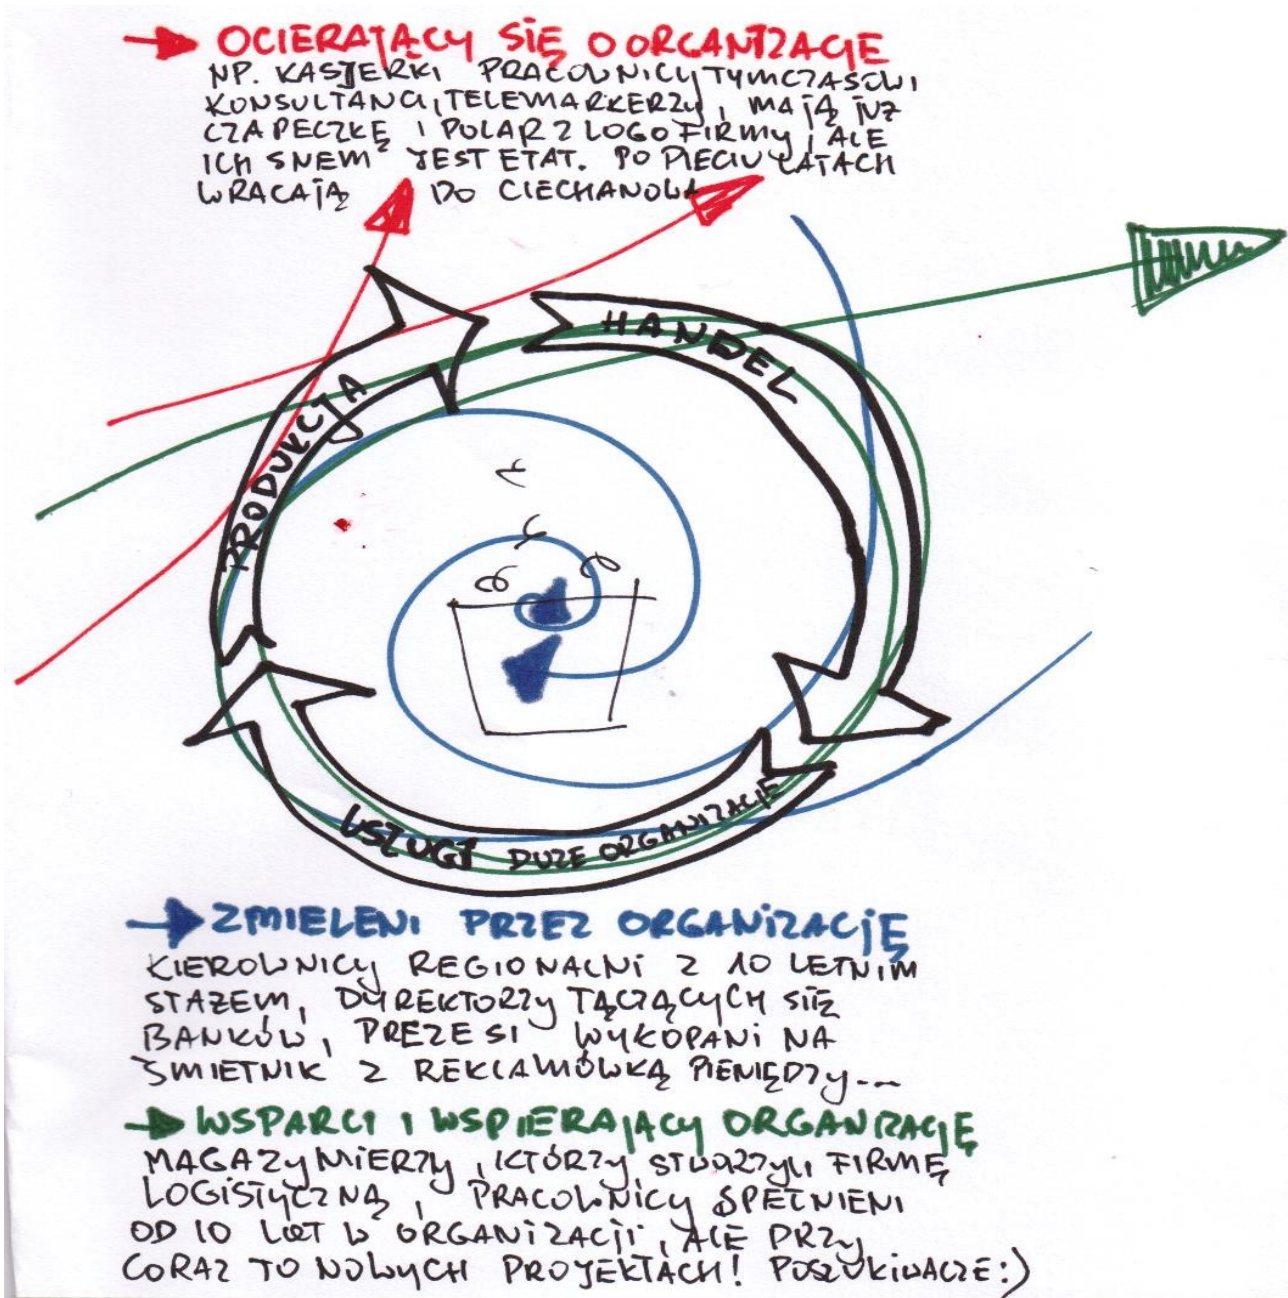 OCIERAJĄCY SIĘ O ORGANIZACJE
NP. KASJERKI PRACOWNICY TYMCZASOWI
KONSULTANCI, TELEMARKERZY, MAJĄ JUŻ
CZAPECZKĘ I POLAR Z LOGO FIRMY, ALE
ICH SNEM JEST ETAT. PO PIĘCIU LATACH
WRACAJĄ DO CIECHANOWA
HANDEL
PRODUKCJA
USŁUGI DUŻE ORGANIZACJE
ZMIELENI PRZEZ ORGANIZACJĘ
KIEROWNICY REGIONALNI Z 10 LETNIM
STAŻEM, DYREKTORZY ŁĄCZĄCYCH SIĘ
BANKÓW, PREZESI WYKOPANI NA
ŚMIETNIK Z REKLAMÓWKĄ PIENIĘDZY...
WSPARCI I WSPIERAJĄCY ORGANIZACJĘ
MAGAZYNIERZY, KTÓRZY STWORZYLI FIRMĘ
LOGISTYCZNĄ, PRACOWNICY SPEŁNIENI
OD 10 LAT W ORGANIZACJI, ALE PRZY
CORAZ TO NOWYCH PROJEKTACH! POSZUKIWACZE:)